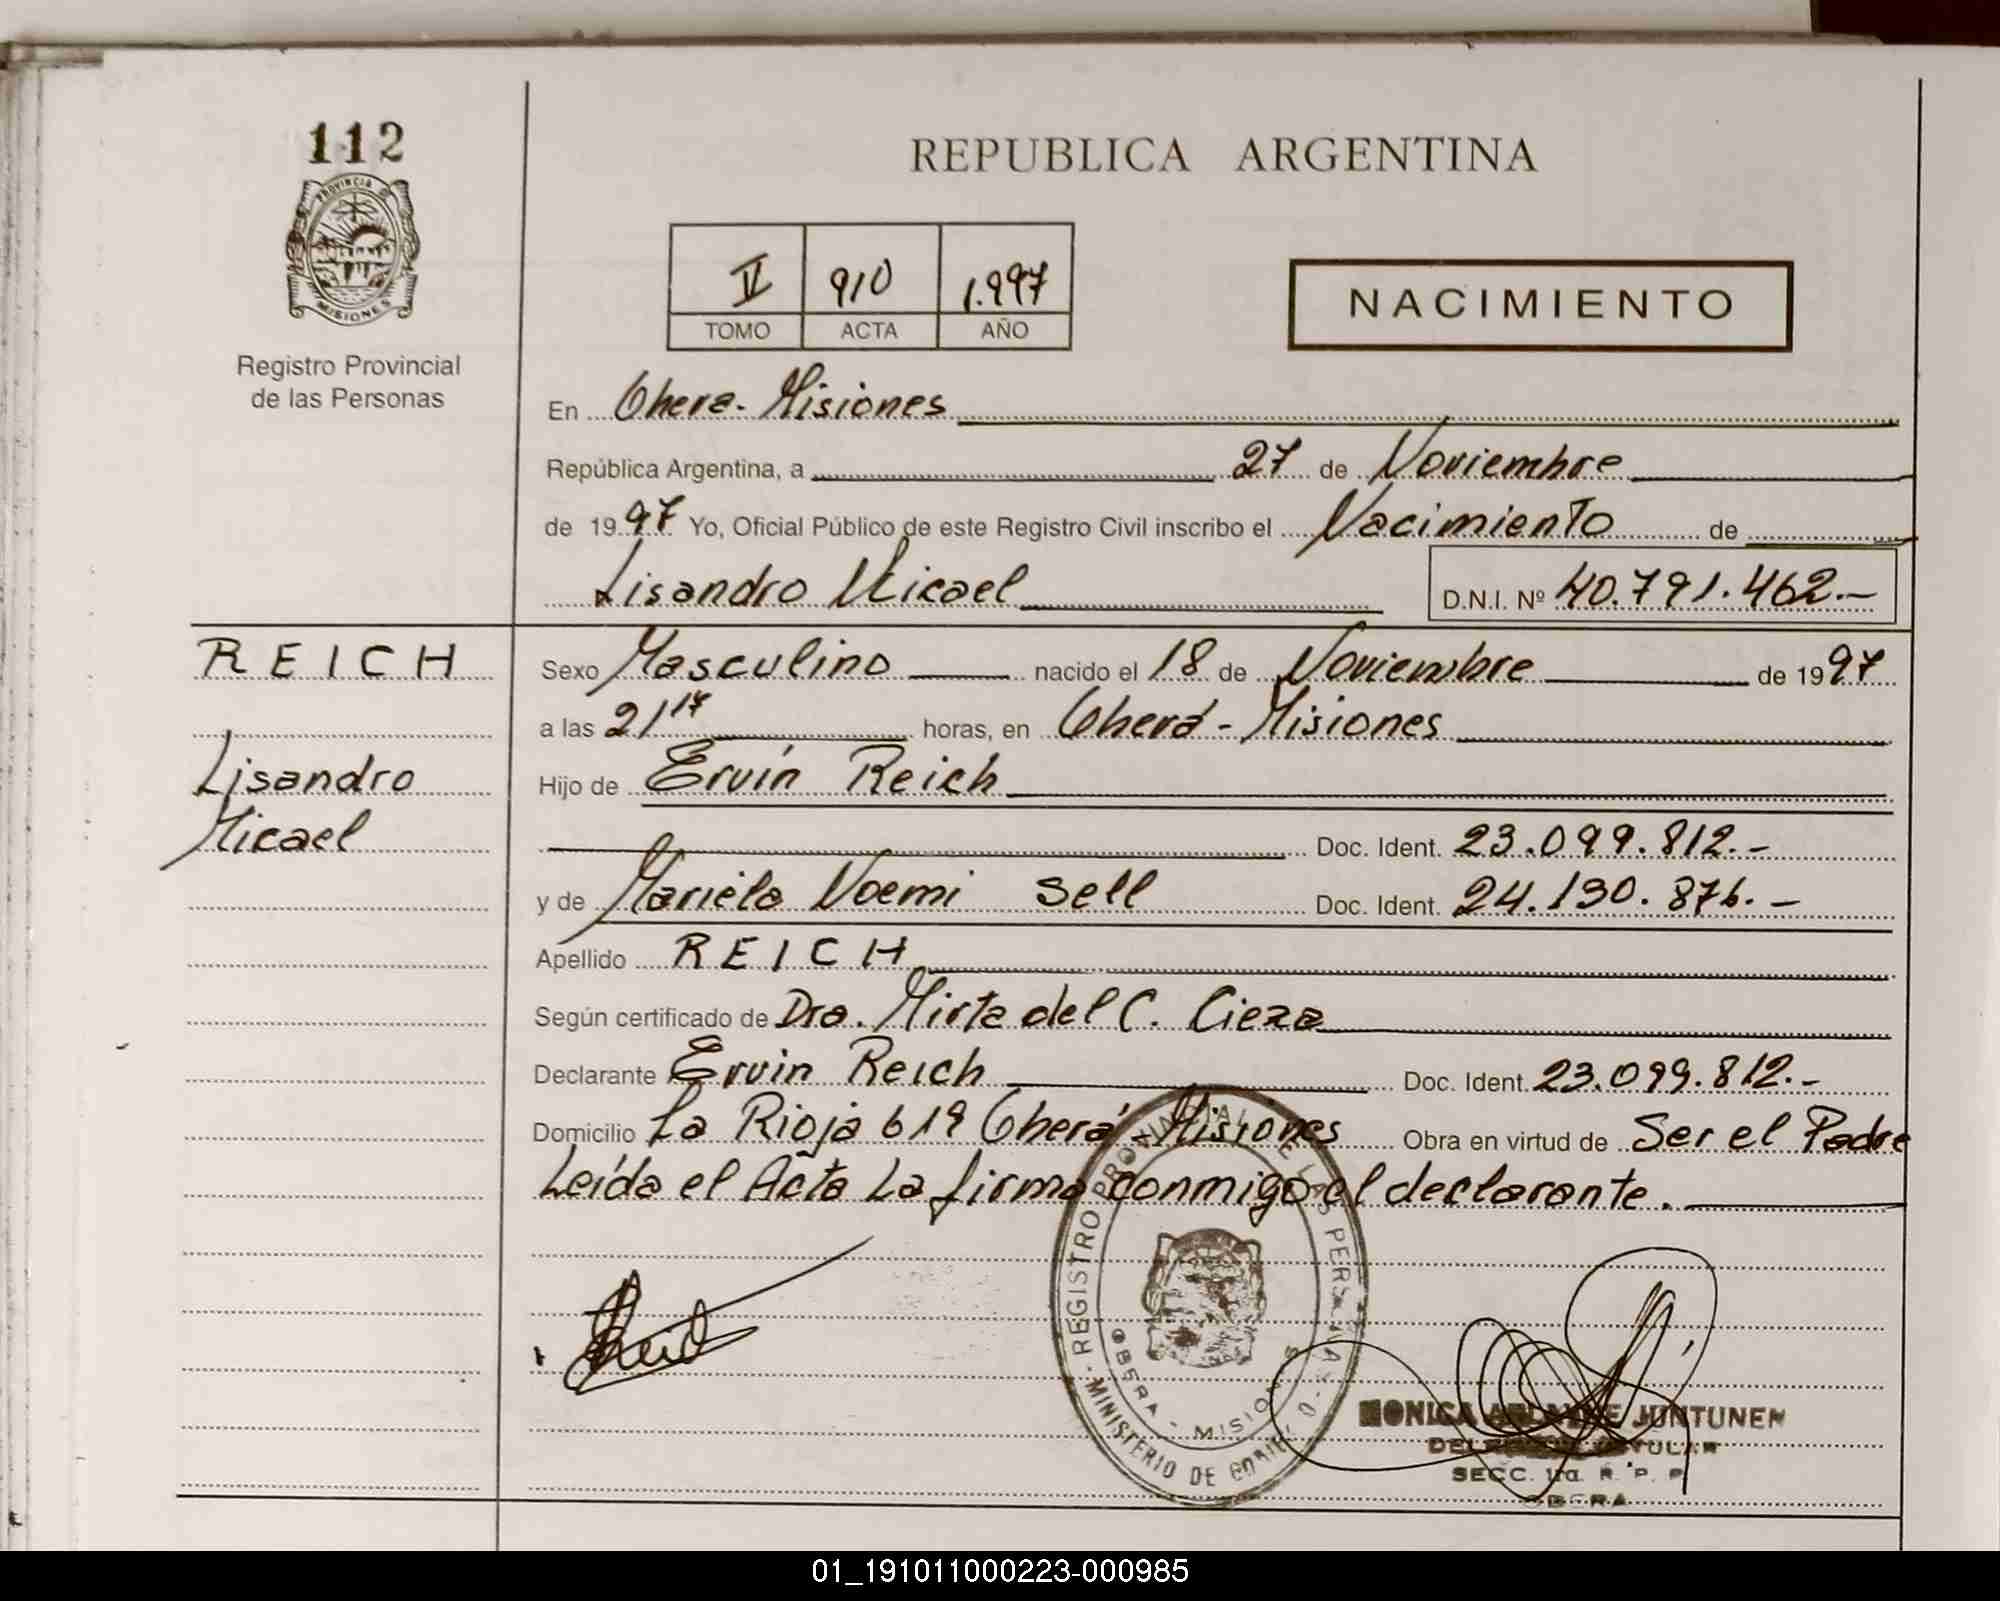 112
PROVINCIA D
MISIONES
Registro Provincial
de las Personas
REPUBLICA ARGENTINA
IV 910 1.997
TOMO ACTA AÑO
NACIMIENTO
En Obera - Misiones
República Argentina, a 27 de Noviembre
de 1997 Yo, Oficial Público de este Registro Civil inscribo el Nacimiento de
Lisandro Micael D.N.I. Nº 40.791.462.-
REICH
Lisandro
Micael
Sexo Masculino nacido el 18 de Noviembre de 1997
a las 21 17 horas, en Oberá - Misiones
Hijo de Ervín Reich
Doc. Ident. 23.099.812.-
y de Mariela Noemi Sell Doc. Ident. 24.130.876.-
Apellido REICH
Según certificado de Dra. Mirta del C. Cieza
Declarante Ervin Reich Doc. Ident. 23.099.812.-
Domicilio La Rioja 619 Oberá - Misiones Obra en virtud de Ser el Padre
Leída el Acta La firma conmigo el declarante.
REGISTRO PROVINCIAL DE LAS PERSONAS
MINISTERIO DE GOBIERNO
OBERA - MISIONES
MONICA JUNTUNEN
TITULAR
SECC. 1ra. R. P. P.
OBERA
01_191011000223-000985